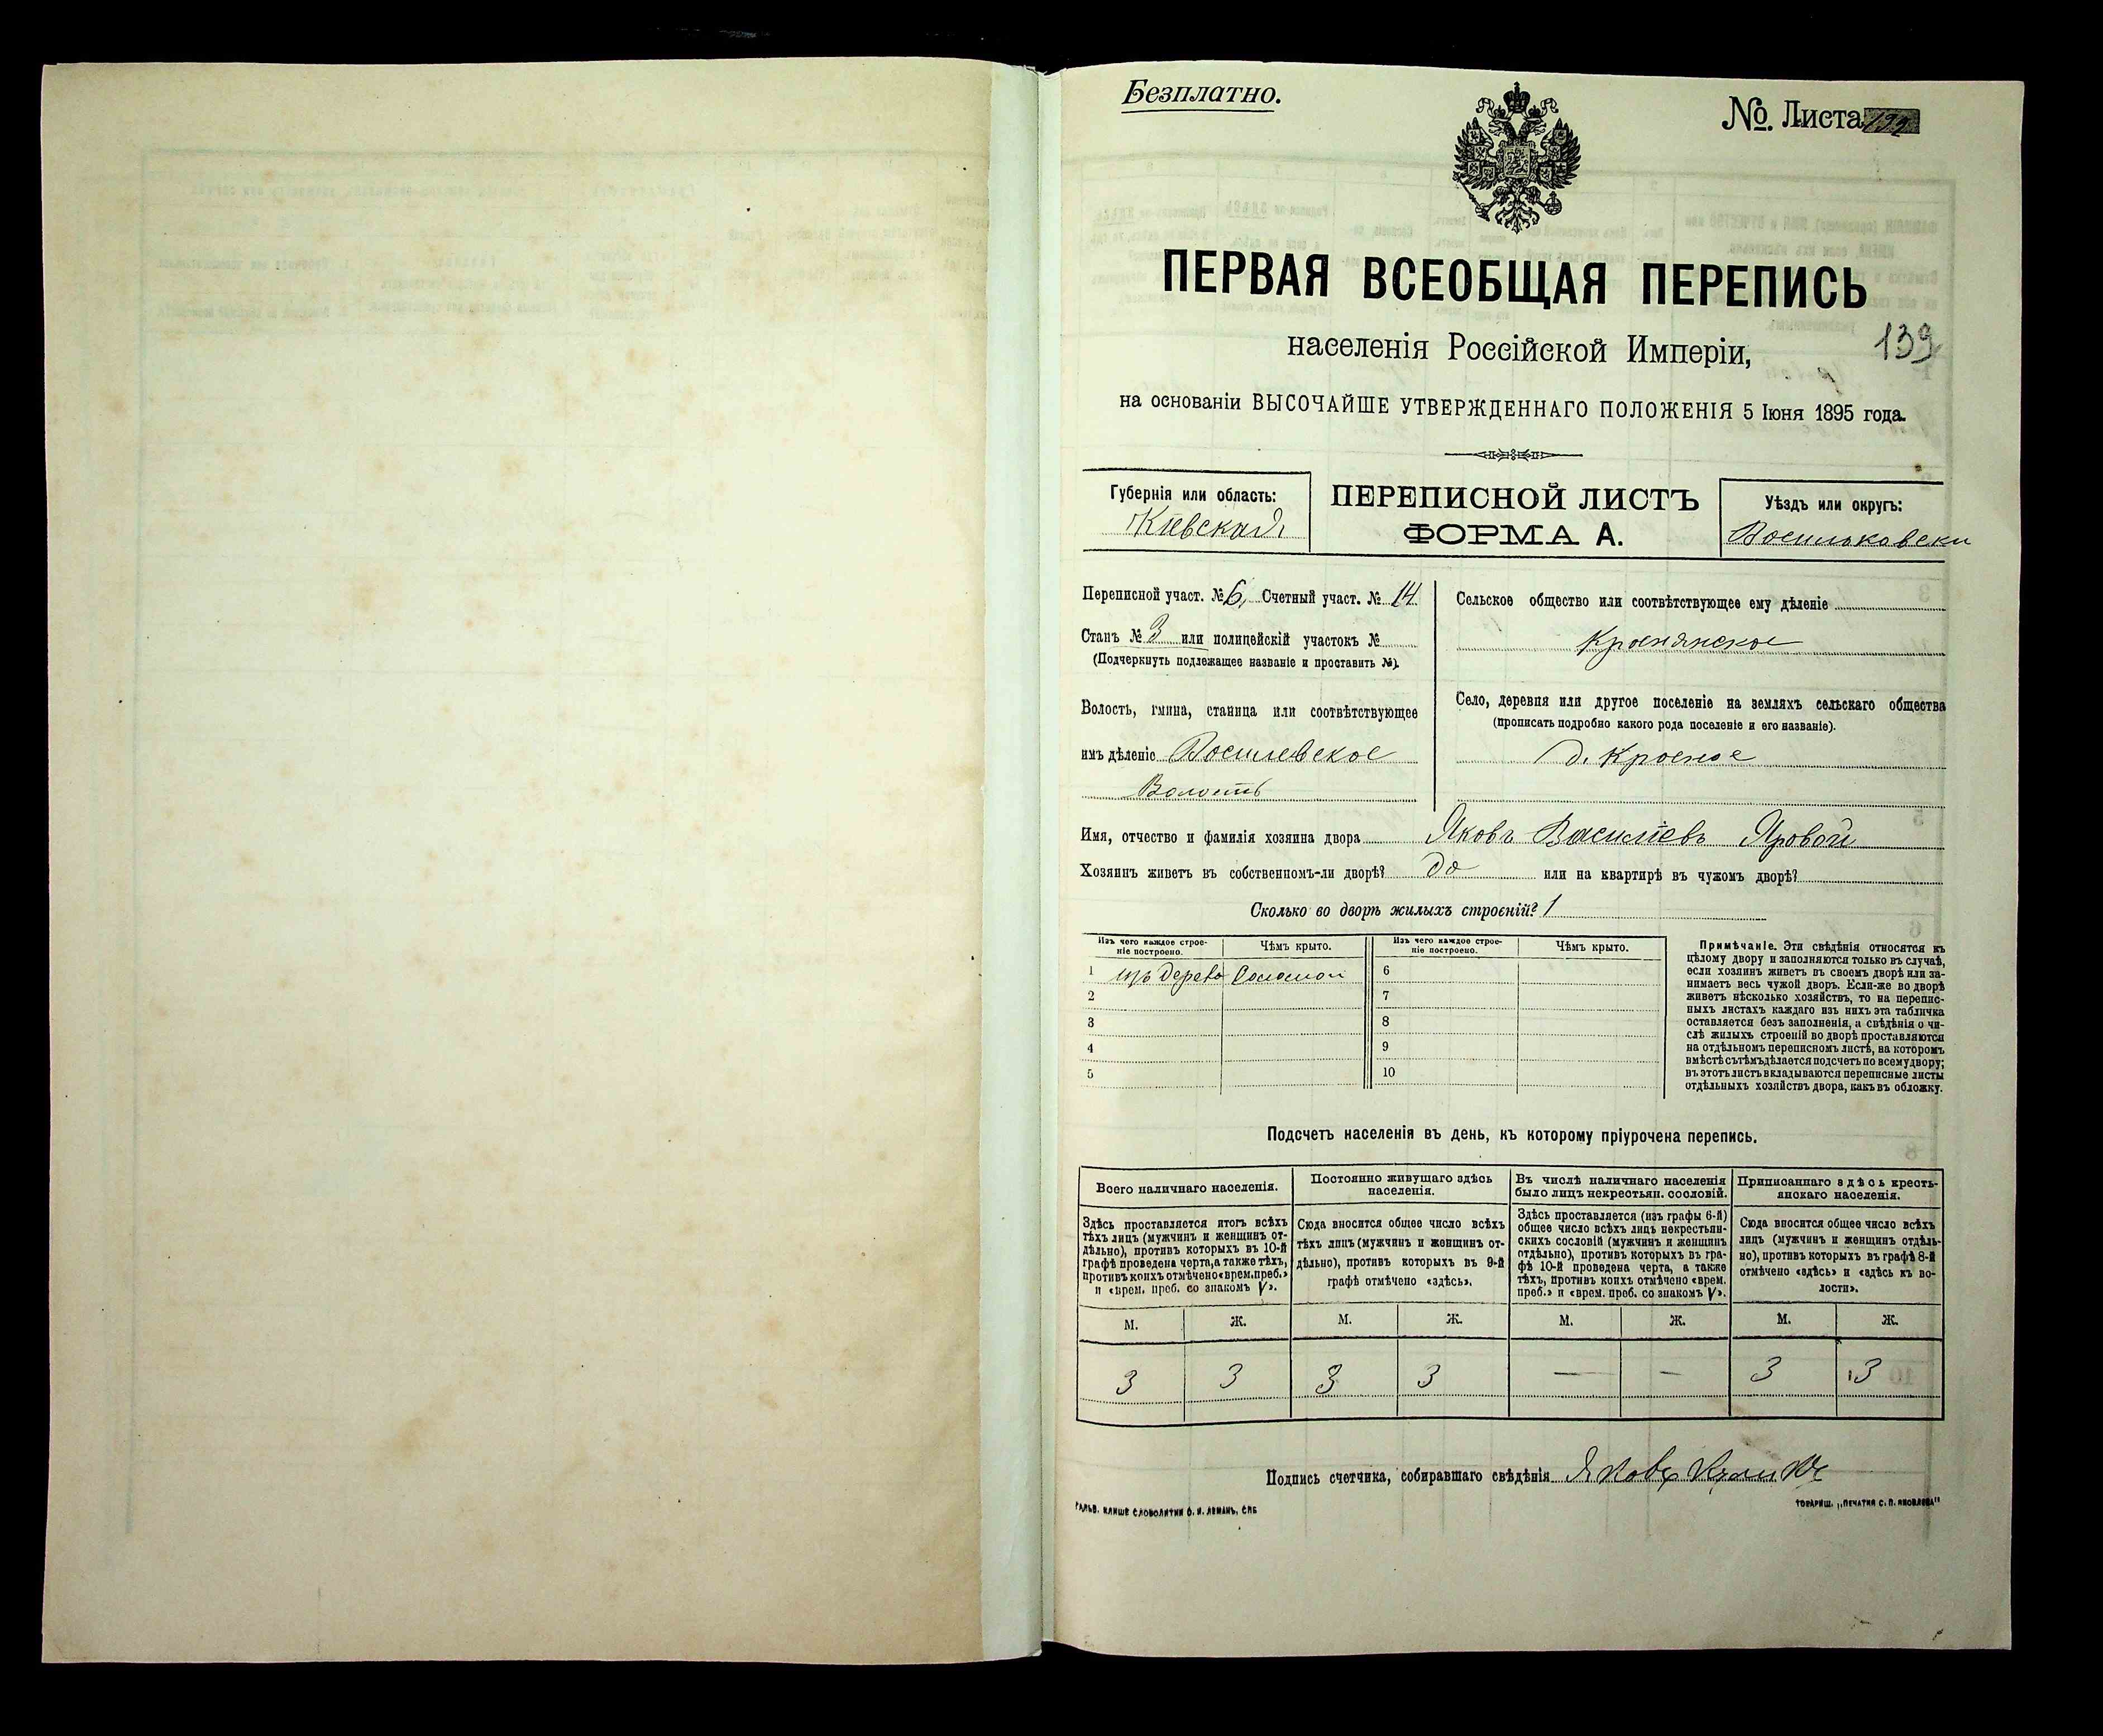 Безплатно.
№ Листа 139
ПЕРВАЯ ВСЕОБЩАЯ ПЕРЕПИСЬ
населенія Россійской Имперіи,
139
на основаніи ВЫСОЧАЙШЕ УТВЕРЖДЕННАГО ПОЛОЖЕНІЯ 5 Іюня 1895 года.
Губернія или область:
Кіевская
ПЕРЕПИСНОЙ ЛИСТЪ
ФОРМА А.
Уѣздъ или округъ:
Васильковски
Переписной участ. № 6, Счетный участ. № 14
Станъ № 3 или полицейскій участокъ №
(Подчеркнуть подлежащее названіе и проставить №).
Волость, гмина, станица или соотвѣтствующее
имъ дѣленіе Василевское
Волость
Сельское общество или соотвѣтствующее ему дѣленіе
Краснянское
Село, деревня или другое поселеніе на земляхъ сельскаго общества
(прописать подробно какого рода поселеніе и его названіе).
д. Красное
Имя, отчество и фамилія хозяина двора Яковъ Василіевъ Яровой
Хозяинъ живетъ въ собственномъ-ли дворѣ? да или на квартирѣ въ чужомъ дворѣ?
Сколько во дворѣ жилыхъ строеній? 1
Изъ чего каждое строе-
ніе построено.
Чѣмъ крыто.
Изъ чего каждое строе-
ніе построено.
Чѣмъ крыто.
1 изъ дерева Соломой 6
2 7
3 8
4 9
5 10
Примѣчаніе. Эти свѣдѣнія относятся къ
цѣлому двору и заполняются только въ случаѣ,
если хозяинъ живетъ въ своемъ дворѣ или за-
нимаетъ весь чужой дворъ. Если-же во дворѣ
живетъ нѣсколько хозяйствъ, то на перепис-
ныхъ листахъ каждаго изъ нихъ эта табличка
оставляется безъ заполненія, а свѣдѣнія о чи-
слѣ жилыхъ строеній во дворѣ проставляются
на отдѣльномъ переписномъ листѣ, на которомъ
вмѣстѣ съ тѣмъ дѣлается подсчетъ по всему двору;
въ этотъ листъ вкладываются переписные листы
отдѣльныхъ хозяйствъ двора, какъ въ обложку.
Подсчетъ населенія въ день, къ которому пріурочена перепись.
Всего наличнаго населенія.
Здѣсь проставляется итогъ всѣхъ
тѣхъ лицъ (мужчинъ и женщинъ от-
дѣльно), противъ которыхъ въ 10-й
графѣ проведена черта, а также тѣхъ,
противъ коихъ отмѣчено «врем. преб.»
и «врем. преб. со знакомъ V».
Постоянно живущаго здѣсь
населенія.
Сюда вносится общее число всѣхъ
тѣхъ лицъ (мужчинъ и женщинъ от-
дѣльно), противъ которыхъ въ 9-й
графѣ отмѣчено «здѣсь».
Въ числѣ наличнаго населенія
было лицъ некрестьян. сословій.
Здѣсь проставляется (изъ графы 6-й)
общее число всѣхъ лицъ некрестьян-
скихъ сословій (мужчинъ и женщинъ
отдѣльно), противъ которыхъ въ гра-
фѣ 10-й проведена черта, а также
тѣхъ, противъ коихъ отмѣчено «врем.
преб.» и «врем. преб. со знакомъ V».
Приписаннаго здѣсь кресть-
янскаго населенія.
Сюда вносится общее число всѣхъ
лицъ (мужчинъ и женщинъ отдѣль-
но), противъ которыхъ въ графѣ 8-й
отмѣчено «здѣсь» и «здѣсь къ во-
лости».
М. Ж. М. Ж. М. Ж. М. Ж.
3 3 3 3 — — 3 3
Подпись счетчика, собиравшаго свѣдѣнія Яковъ
ГАЛЬВ. КЛИШЕ СЛОВОЛИТНИ О. И. ЛЕМАНЪ, СПБ
ТОВАРИЩ. „ПЕЧАТНЯ С. П. ЯКОВЛЕВА"